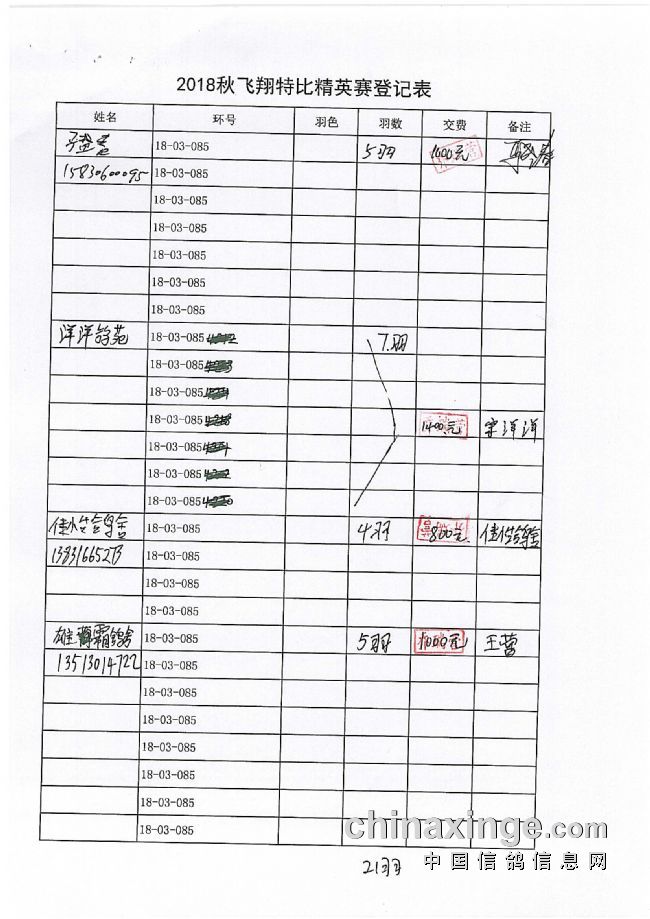 2018秋飞翔特比精英赛登记表
姓名 环号 羽色 羽数 交费 备注
18-03-085 5羽 1000元
15830600095 18-03-085
18-03-085
18-03-085
18-03-085
18-03-085
18-03-085
洋洋鸽苑 18-03-085 7羽
18-03-085
18-03-085
18-03-085 1400元 宋洋洋
18-03-085
18-03-085
18-03-085
18-03-085 4羽 800元
18-03-085
18-03-085
18-03-085
雄霸鸽舍 18-03-085 5羽 1000元 王营
13513014722 18-03-085
18-03-085
18-03-085
18-03-085
18-03-085
18-03-085
18-03-085
21羽
chinaxinge.com
中国信鸽信息网